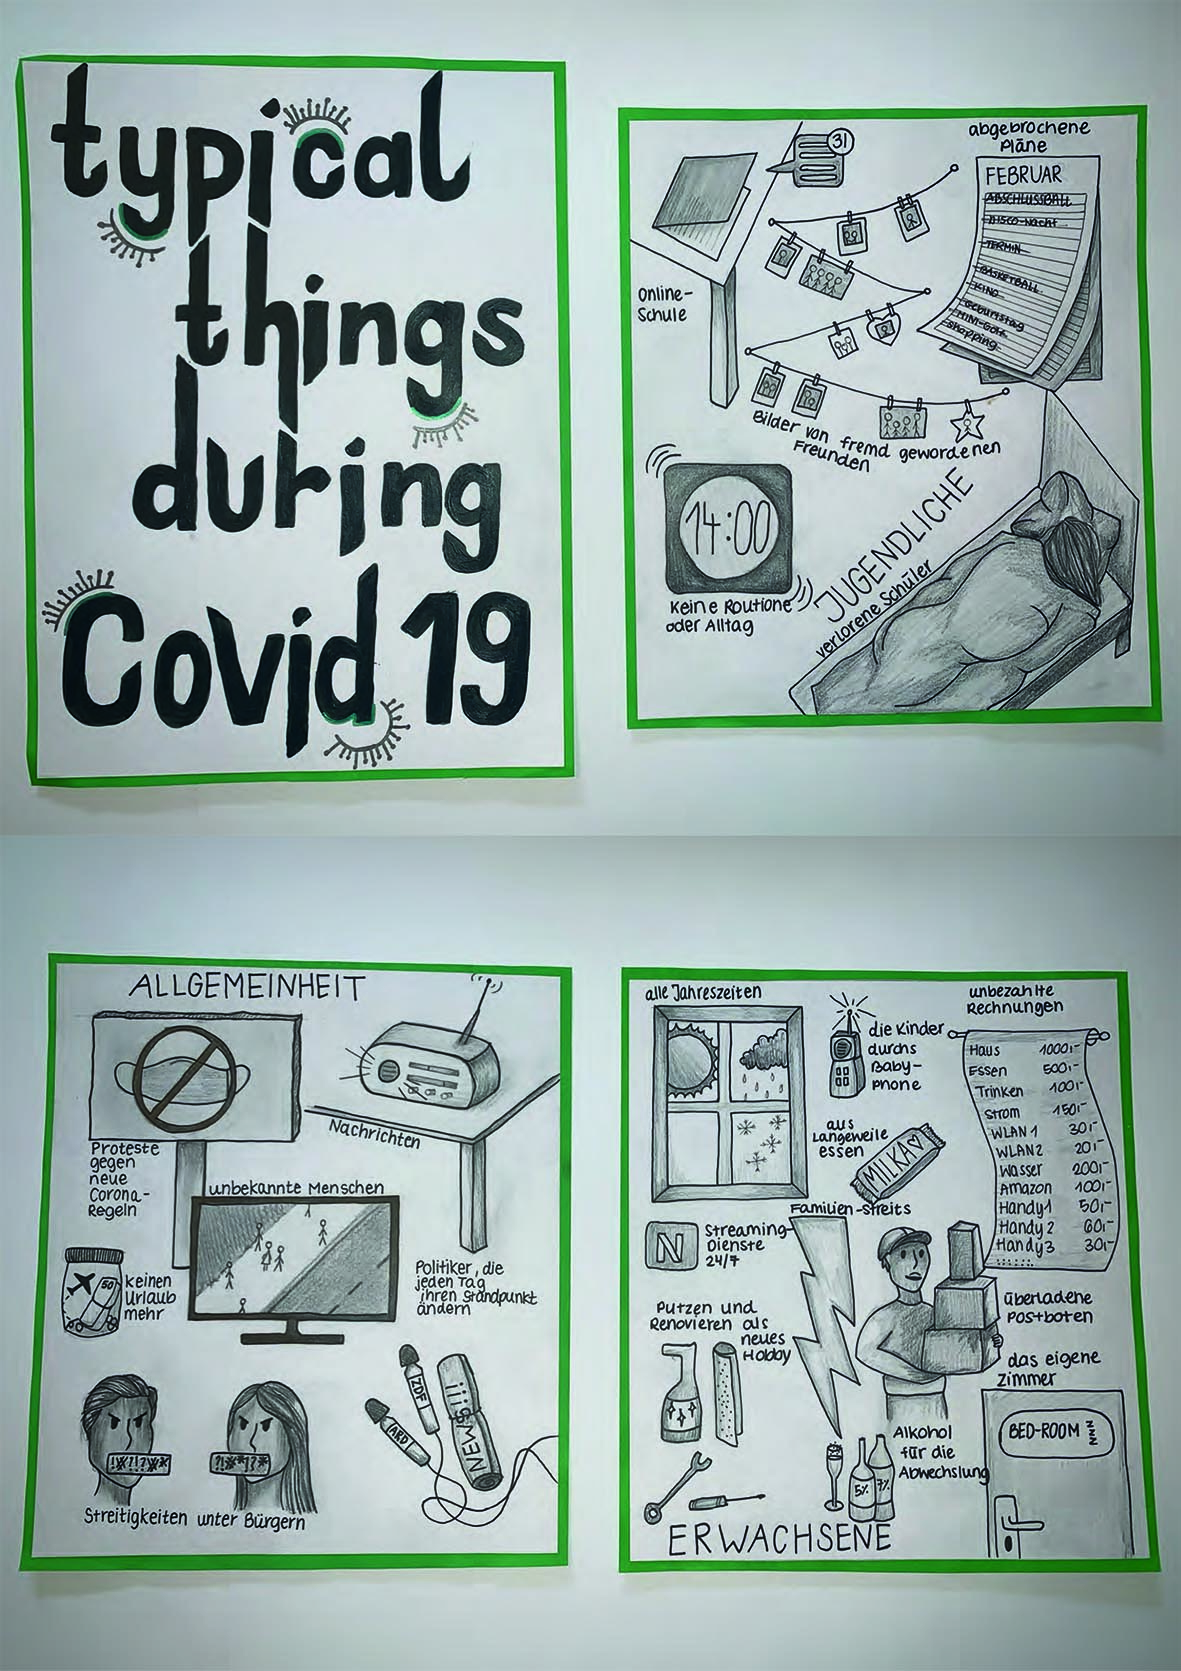 typical
things
during
Covid 19
31
Online-
Schule
abgebrochene
Pläne
FEBRUAR
ABSCHLUSSBALL
DISCO-Nacht
TERMIN
BASKETBALL
KINO
Geburtstag
MINI-Golf
shopping
Bilder von fremd gewordenen
Freunden
14:00
Keine Routine
oder Alltag
JUGENDLICHE
verlorene Schüler
ALLGEMEINHEIT
Proteste
gegen
neue
Corona-
Regeln
Nachrichten
unbekannte Menschen
50
keinen
Urlaub
mehr
Politiker, die
jeden Tag
ihren Standpunkt
ändern
!*?!?**
?!**!?*
Streitigkeiten unter Bürgern
ARD
ZDF
NEWS!!!
alle Jahreszeiten
die Kinder
durchs
Baby-
phone
unbezahlte
Rechnungen
Haus 1000,-
Essen 500,-
Trinken 100,-
Strom 150,-
WLAN 1 30,-
WLAN 2 20,-
Wasser 200,-
Amazon 100,-
Handy 1 50,-
Handy 2 60,-
Handy 3 30,-
......
aus
Langeweile
essen
MILKA♡
Familien-streits
N
Streaming-
Dienste
24/7
Putzen und
Renovieren als
neues
Hobby
überladene
Postboten
das eigene
Zimmer
BED-ROOM
zzz
Alkohol
für die
Abwechslung
5%
7%
ERWACHSENE